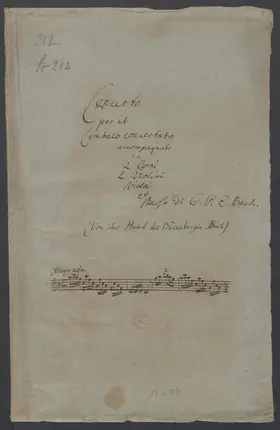 212.
Concerto
per il
Cembalo concertato
accompagnato
da
2 Corni
2 Violini
Viola
e
Basso di C. P. E. Bach.
(Von der Hand des Bückeburger Bach)
Allegro assai